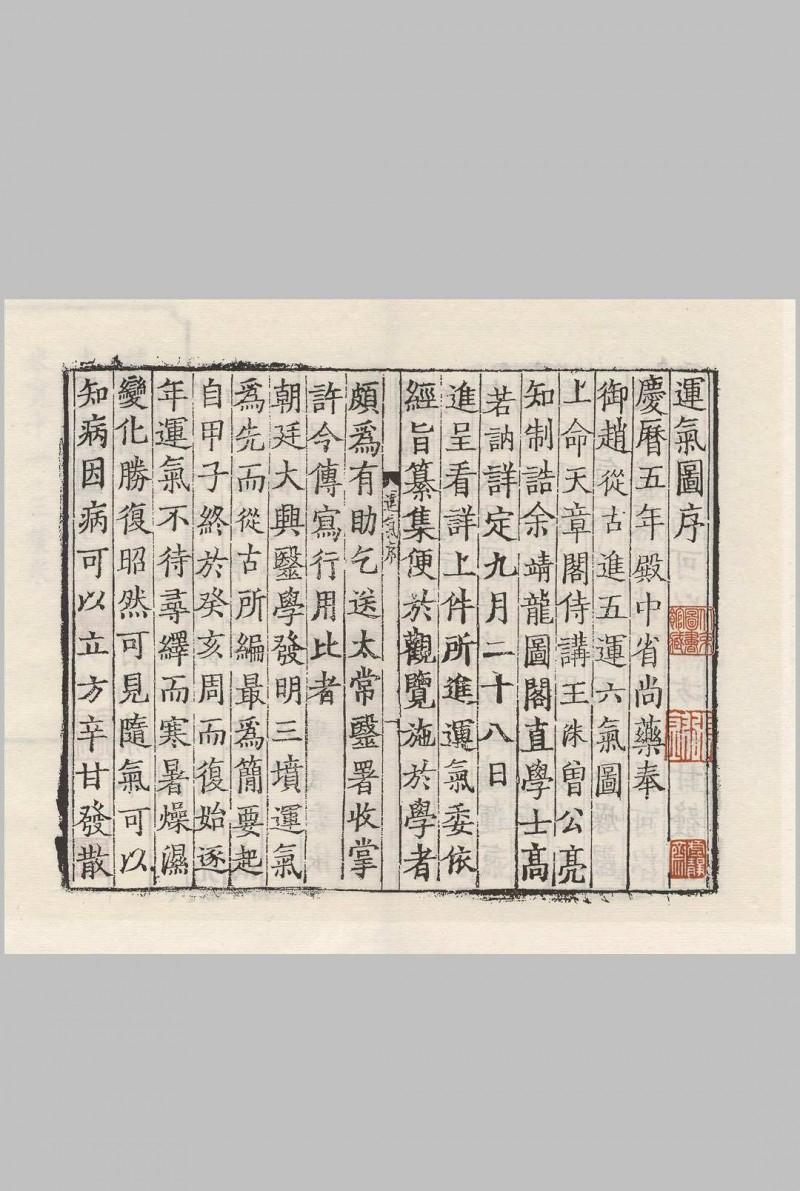 運氣圖序
慶曆五年殿中省尚藥奉
御趙從古進五運六氣圖
上命天章閣侍講王洙曾公亮
知制誥余靖龍圖閣直學士高
若訥詳定九月二十八日
進呈看詳上件所進運氣委依
經旨纂集便於觀覽施於學者
運氣序
一
頗爲有助乞送太常毉署收掌
許令傳寫行用比者
朝廷大興毉學發明三墳運氣
爲先而從古所編最爲簡要起
自甲子終於癸亥周而復始逐
年運氣不待尋繹而寒暑燥濕
變化勝復昭然可見隨氣可以
知病因病可以立方辛甘發散